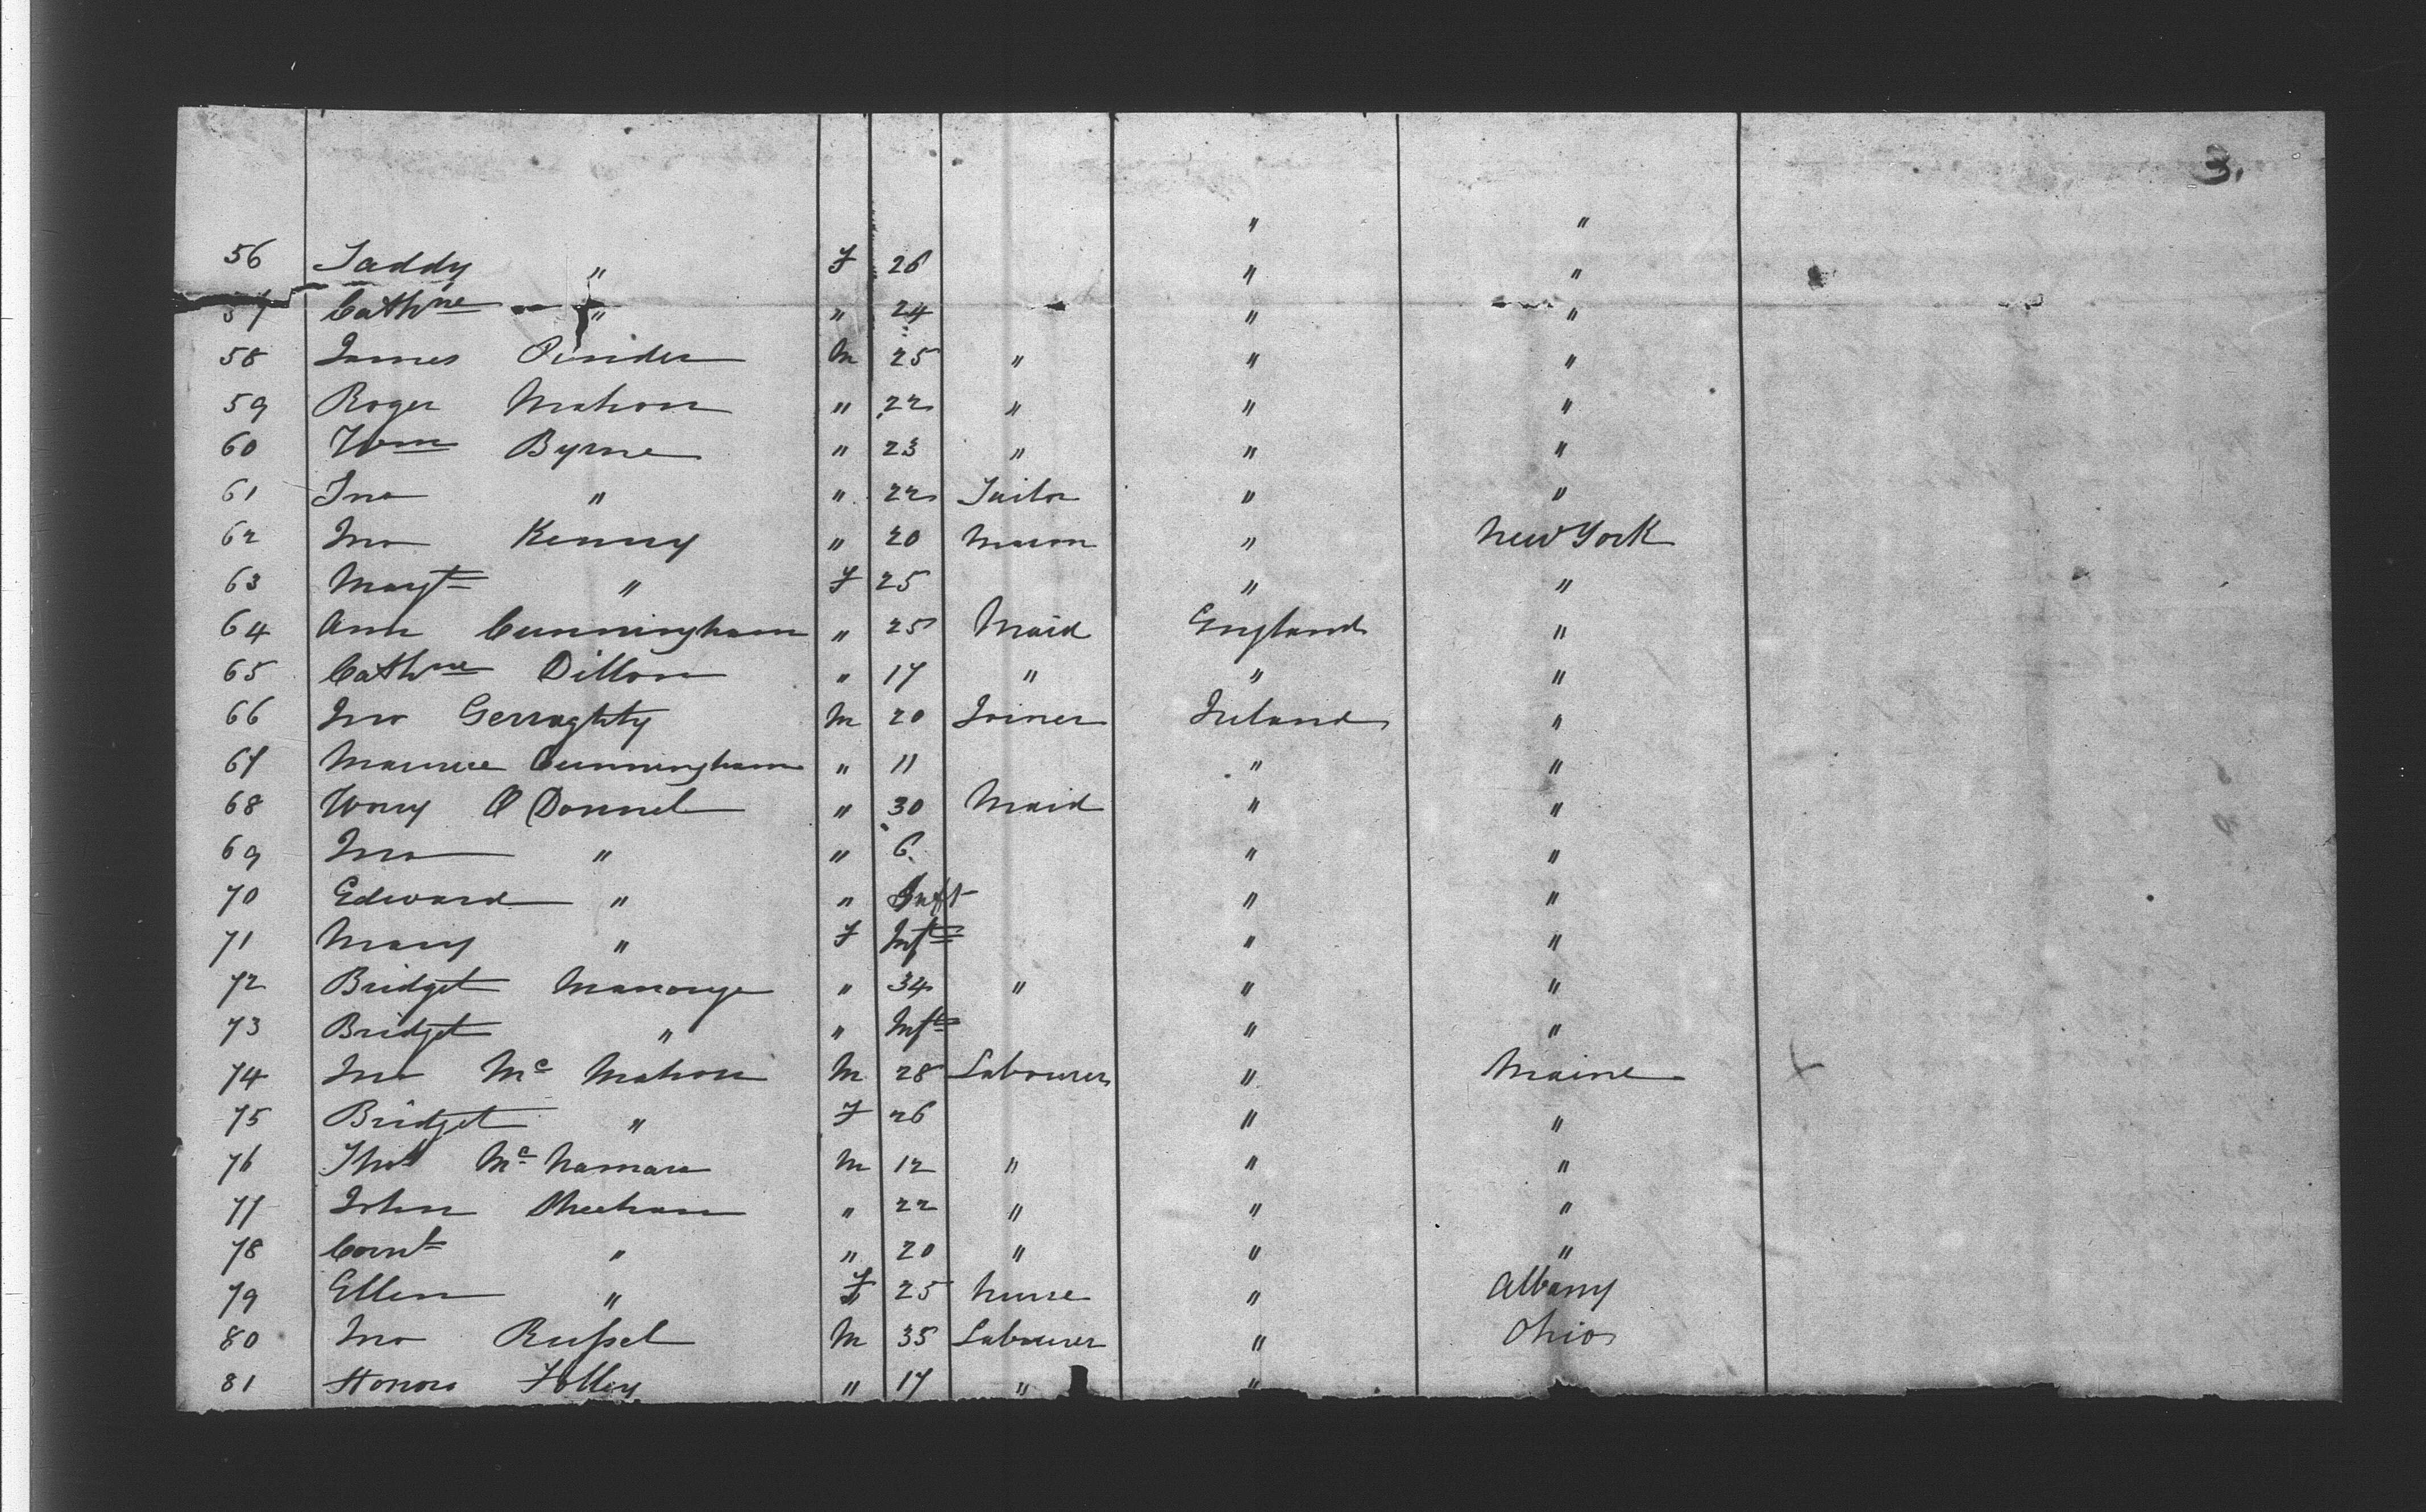 3.
" "
56 Taddy " F 26 " "
57 Cathne " " 24 " "
58 James Pender M 25 " " "
59 Roger Mahon " 22 " " "
60 Wm Byrne " 23 " " "
61 Jno " " 22 Tailor " "
62 Jno Kenny " 20 Mason " New York
63 Margt " F 25 " "
64 Ann Cunningham " 25 Maid England "
65 Cathne Dillon " 17 " " "
66 Jno Gerraghty M 20 Joiner Ireland "
67 Maurice Cunningham " 11 " "
68 Wony O Donnel " 30 Maid " "
69 Jno " " 6 " "
70 Edward " " Inft " "
71 Mary " F Inft " "
72 Bridget " 34 " " "
73 Bridget " " Inft " "
74 Jno Mc Mahon M 28 Labourer " Maine X
75 Bridget " F 26 " "
76 Thos Mc Namara M 12 " " "
77 John Sheehan " 22 " " "
78 Cornl " " 20 " " "
79 Ellen " F 25 Nurse " Albany
80 Jno Russel M 35 Labourer " Ohio
81 Honora Folley " 17 " "